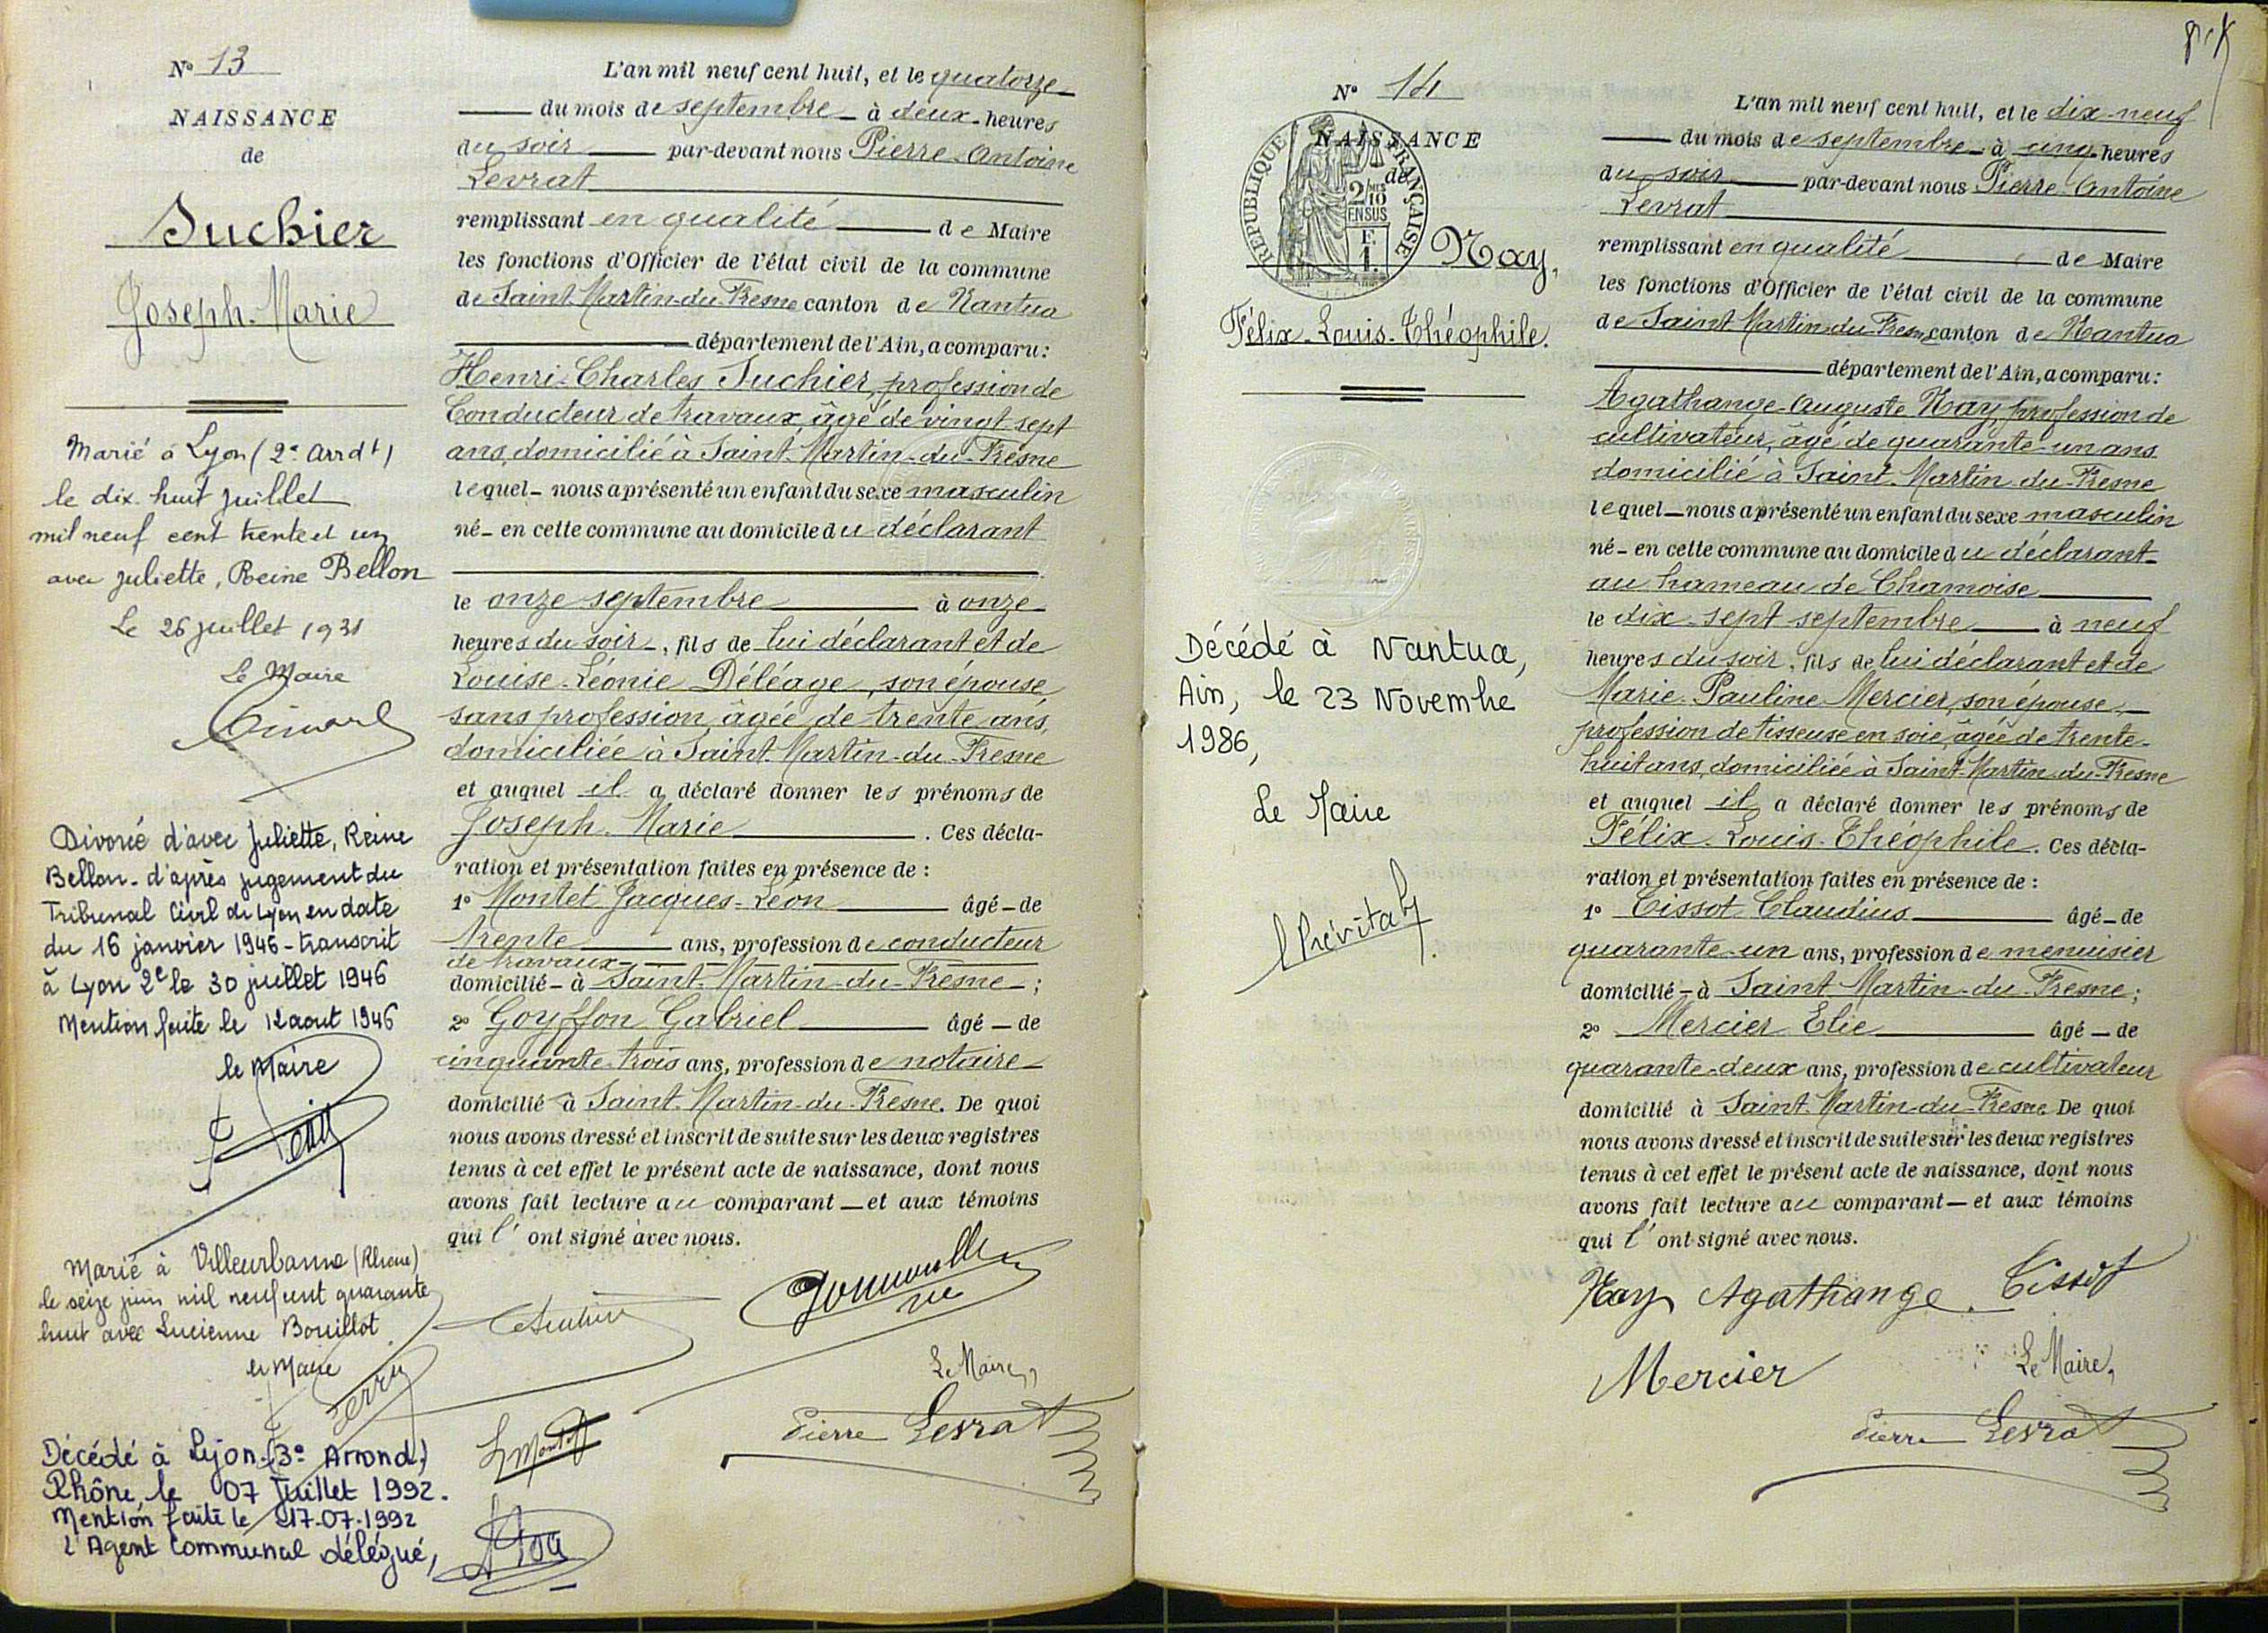 N° 13
NAISSANCE
de
Suchier
Joseph-Marie
Marié à Lyon (2e Arrdt)
le dix-huit juillet
mil neuf cent trente et un
avec Juliette, Reine Bellon
Le 26 juillet 1931
Le Maire
Divorcé d'avec Juliette, Reine
Bellon - d'après jugement du
Tribunal Civil de Lyon en date
du 16 janvier 1946 - transcrit
à Lyon 2e le 30 juillet 1946
Mention faite le 12 aout 1946
le Maire
Marié à Villeurbanne (Rhône)
le seize juin mil neuf cent quarante
huit avec Lucienne Bouillot
le Maire
Décédé à Lyon (3e Arrond)
Rhône, le 07 Juillet 1992.
Mention faite le 17-07-1992
L'Agent Communal délégué,
L'an mil neuf cent huit, et le quatorze
du mois de septembre à deux heures
du soir par-devant nous Pierre-Antoine
Levrat
remplissant en qualité de Maire
les fonctions d'Officier de l'état civil de la commune
de Saint-Martin-du-Fresne canton de Nantua
département de l'Ain, a comparu :
Henri-Charles Suchier, profession de
Conducteur de travaux, âgé de vingt sept
ans, domicilié à Saint-Martin-du-Fresne
lequel nous a présenté un enfant du sexe masculin
né en cette commune au domicile du déclarant
le onze septembre à onze
heures du soir, fils de lui déclarant et de
Louise-Léonie Déléage, son épouse
sans profession, âgée de trente ans,
domiciliée à Saint-Martin-du-Fresne
et auquel il a déclaré donner les prénoms de
Joseph-Marie. Ces décla-
ration et présentation faites en présence de :
1° Montet Jacques-Léon âgé de
trente ans, profession de conducteur
de travaux
domicilié à Saint-Martin-du-Fresne ;
2° Goyffon Gabriel âgé de
cinquante-trois ans, profession de notaire
domicilié à Saint-Martin-du-Fresne. De quoi
nous avons dressé et inscrit de suite sur les deux registres
tenus à cet effet le présent acte de naissance, dont nous
avons fait lecture au comparant et aux témoins
qui l'ont signé avec nous.
Le Maire,
Pierre Levrat
N° 14
NAISSANCE
de
REPUBLIQUE FRANÇAISE
2/10
EN SUS
F.
1.
Nay,
Félix-Louis-Théophile.
Décédé à Nantua,
Ain, le 23 Novembre
1986,
Le Maire
L'an mil neuf cent huit, et le dix-neuf
du mois de septembre à cinq heures
du soir par-devant nous Pierre-Antoine
Levrat
remplissant en qualité de Maire
les fonctions d'Officier de l'état civil de la commune
de Saint-Martin-du-Fresne canton de Nantua
département de l'Ain, a comparu :
Agathange-Auguste Nay, profession de
cultivateur, âgé de quarante-un ans
domicilié à Saint-Martin-du-Fresne
lequel nous a présenté un enfant du sexe masculin
né en cette commune au domicile du déclarant
au hameau de Chamoise
le dix-sept septembre à neuf
heures du soir, fils de lui déclarant et de
Marie-Pauline Mercier, son épouse,
profession de tisseuse en soie, âgée de trente-
huit ans, domiciliée à Saint-Martin-du-Fresne
et auquel il a déclaré donner les prénoms de
Félix-Louis-Théophile. Ces décla-
ration et présentation faites en présence de :
1° Tissot Claudius âgé de
quarante-un ans, profession de menuisier
domicilié à Saint-Martin-du-Fresne ;
2° Mercier Elie âgé de
quarante-deux ans, profession de cultivateur
domicilié à Saint-Martin-du-Fresne De quoi
nous avons dressé et inscrit de suite sur les deux registres
tenus à cet effet le présent acte de naissance, dont nous
avons fait lecture au comparant et aux témoins
qui l'ont signé avec nous.
Nay Agathange. Tissot
Mercier
Le Maire,
Pierre Levrat